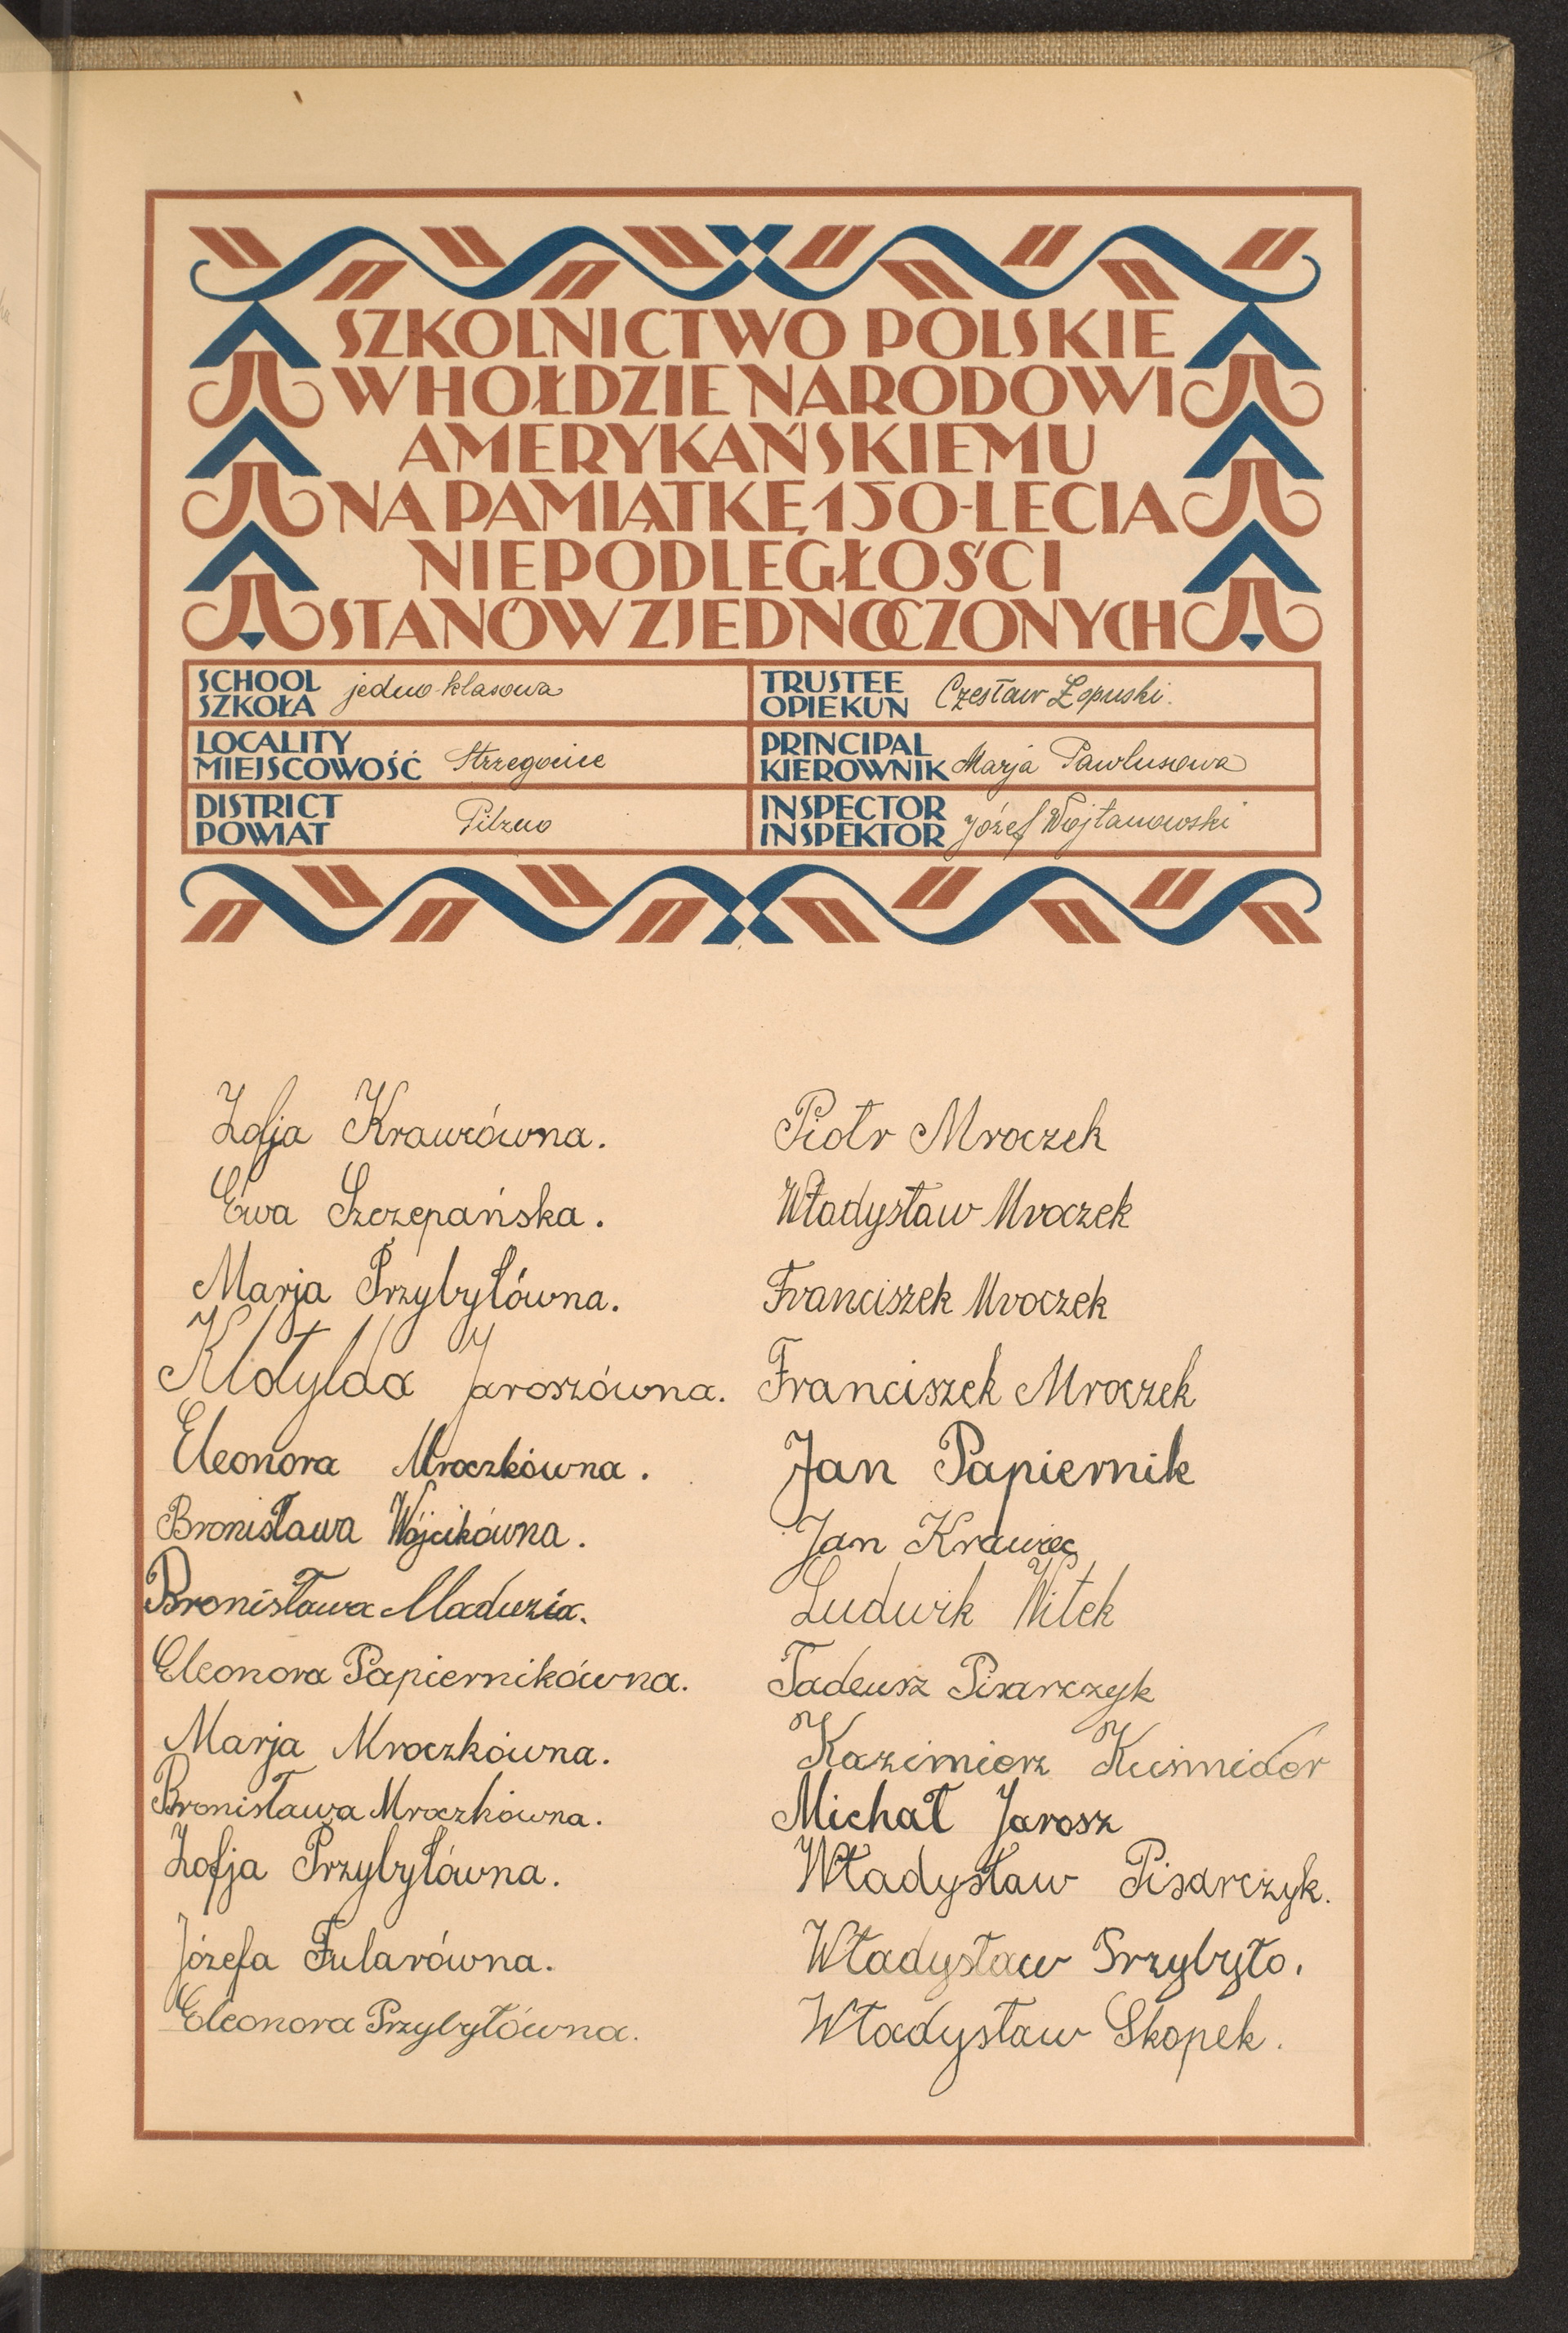 SZKOLNICTWO POLSKIE
W HOŁDZIE NARODOWI
AMERYKAŃSKIEMU
NA PAMIĄTKĘ 150-LECIA
NIEPODLEGŁOŚCI
STANÓW ZJEDNOCZONYCH
SCHOOL
SZKOŁA jedno-klasowa
TRUSTEE
OPIEKUN Czesław Łopuski.
LOCALITY
MIEJSCOWOŚĆ Strzegocice
PRINCIPAL
KIEROWNIK Marja Pawlusowa
DISTRICT
POWIAT Pilzno
INSPECTOR
INSPEKTOR Józef Wojtanowski
Zofja Krawcówna.
Ewa Szczepańska.
Marja Przybyłówna.
Klotylda Jaroszówna.
Eleonora Mroczkówna.
Bronisława Wójcikówna.
Bronisława Maduzia.
Eleonora Papiernikówna.
Marja Mroczkówna.
Bronisława Mroczkówna.
Zofja Przybyłówna.
Józefa Fularówna.
Eleonora Przybyłówna.
Piotr Mroczek
Władysław Mroczek
Franciszek Mroczek
Franciszek Mroczek
Jan Papiernik
Jan Krawiec
Ludwik Witek
Tadeusz Pisarczyk
Kazimierz Kuśmider
Michał Jarosz
Władysław Pisarczyk.
Władysław Przybyło.
Władysław Skopek.